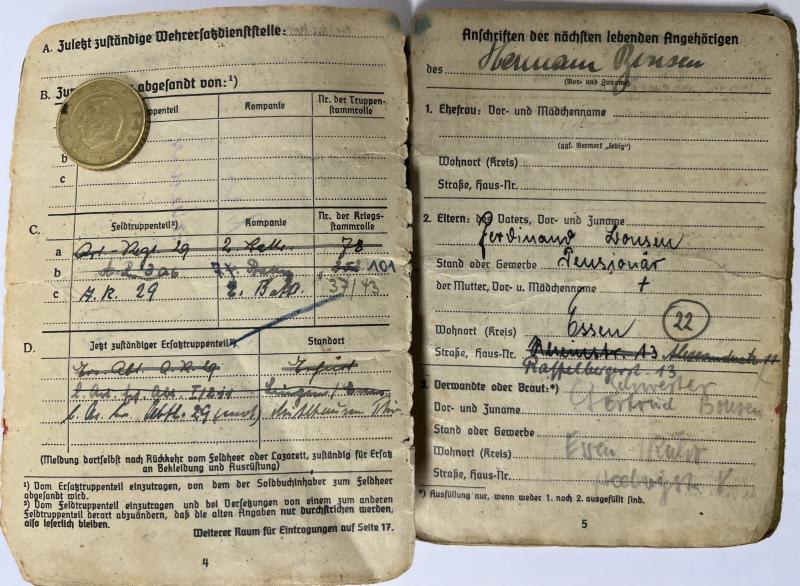 A. Zuletzt zuständige Wehrersatzdienststelle:
B. Zur abgesandt von:¹)
ppenteil Kompanie Nr. der Truppen-
stammrolle
b
c
C. Feldtruppenteil²) Kompanie Nr. der Kriegs-
stammrolle
a Art. Regt 29 2. 78
b 101
c A. R. 29 2. Batt 37/43
D. Jetzt zuständiger Ersatztruppenteil²) Standort
Ers. Abt. A. R. 29 Erfurt
Abtl. 29 (mot)
(Meldung dortselbst nach Rückkehr vom Feldheer oder Lazarett, zuständig für Ersatz
an Bekleidung und Ausrüstung)
¹) Vom Ersatztruppenteil einzutragen, von dem der Soldbuchinhaber zum Feldheer
abgesandt wird.
²) Vom Feldtruppenteil einzutragen und bei Versetzungen von einem zum anderen
Feldtruppenteil derart abzuändern, daß die alten Angaben nur durchstrichen werden,
also leserlich bleiben.
Weiterer Raum für Eintragungen auf Seite 17.
4
Anschriften der nächsten lebenden Angehörigen
des Hermann Bonsen
(Vor- und Zuname)
1. Ehefrau: Vor- und Mädchenname
(ggf. Vermerk „ledig")
Wohnort (Kreis)
Straße, Haus-Nr.
2. Eltern: des Vaters, Vor- und Zuname
Ferdinand Bonsen
Stand oder Gewerbe Pensionär
der Mutter, Vor- u. Mädchenname +
Wohnort (Kreis) Essen 22
Straße, Haus-Nr. Rheinstr. 13
Raffelbergerst. 13
3. Verwandte oder Braut:*) Schwester
Vor- und Zuname Gertrud Bonsen
Stand oder Gewerbe
Wohnort (Kreis) Essen Ruhr
Straße, Haus-Nr. Hedwigstr.
*) Ausfüllung nur, wenn weder 1. noch 2. ausgefüllt sind.
5